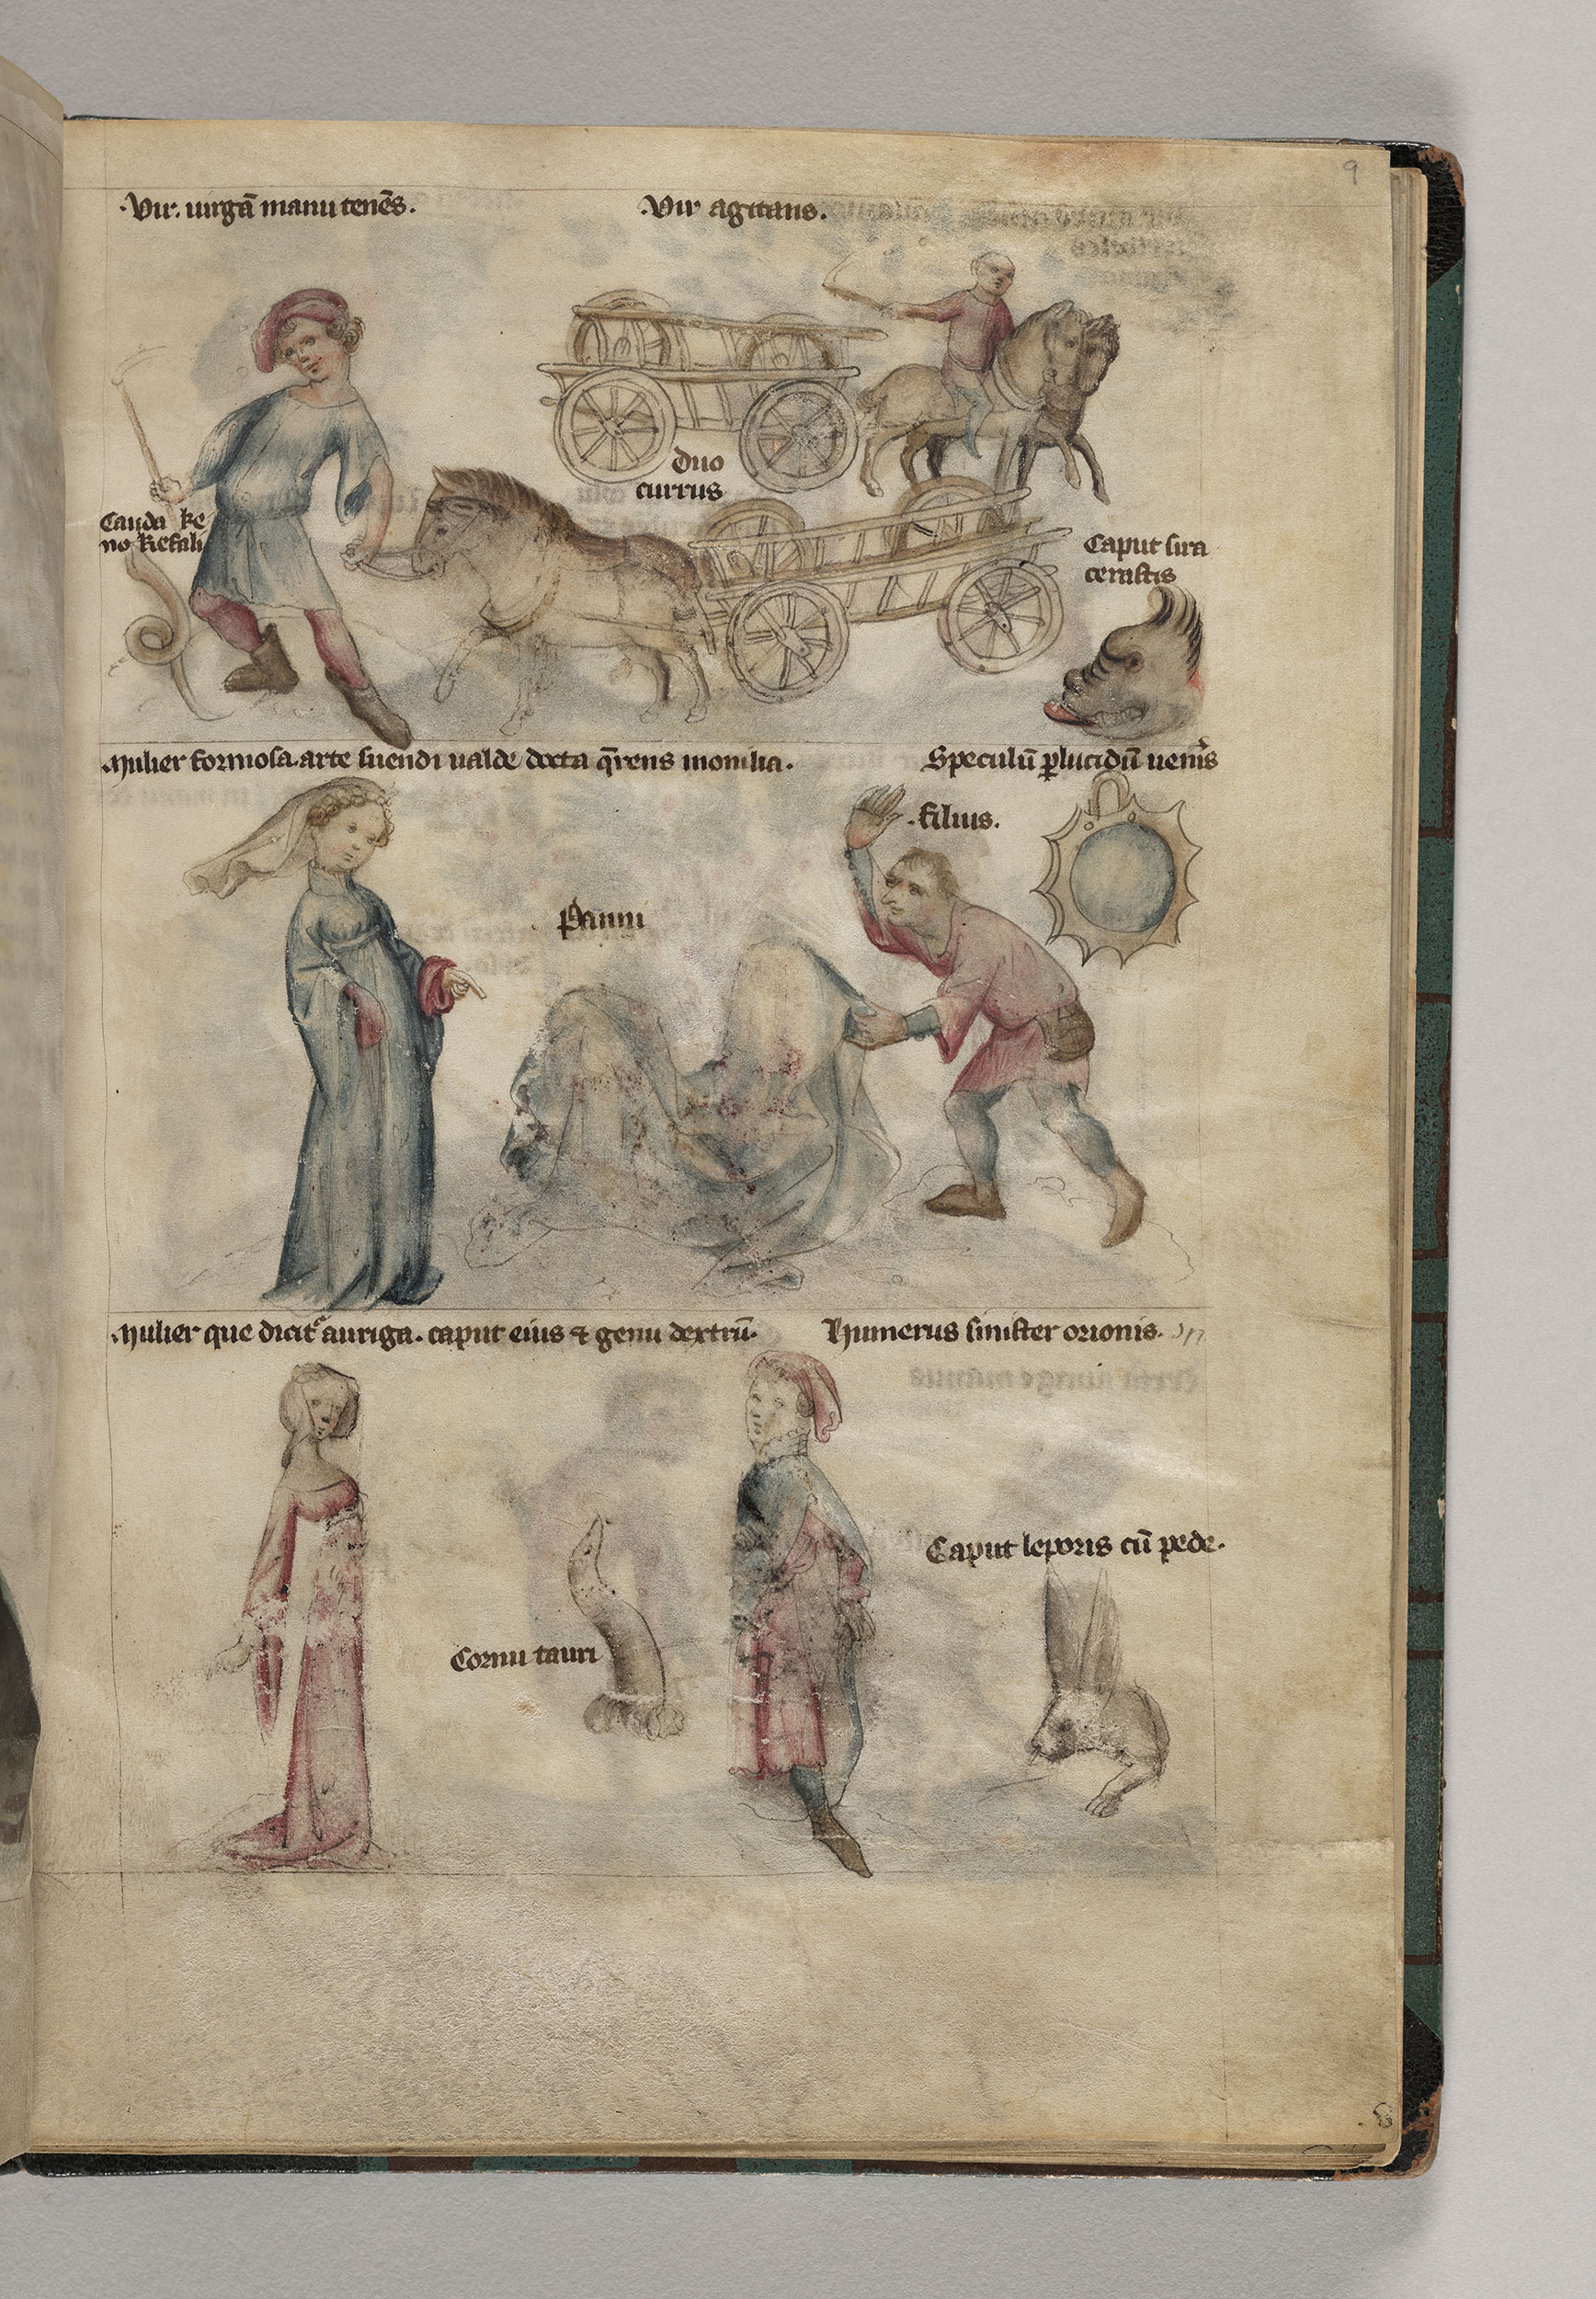 9
.Vir. uirgā manu tenēs.
Vir agitans.
duo
currus
Cauda ke
no kefali
Caput sira
cerastis
Mulier formosa arte suendi ualde docta q̄rens monilia.
Speculū ꝑlucidū uen̄is
.filius.
Panni
Mulier que dicit᷒ auriga. caput eius ⁊ genu dextrū.
Humerus sinister orionis.
Caput leporis cū pede.
Cornu tauri